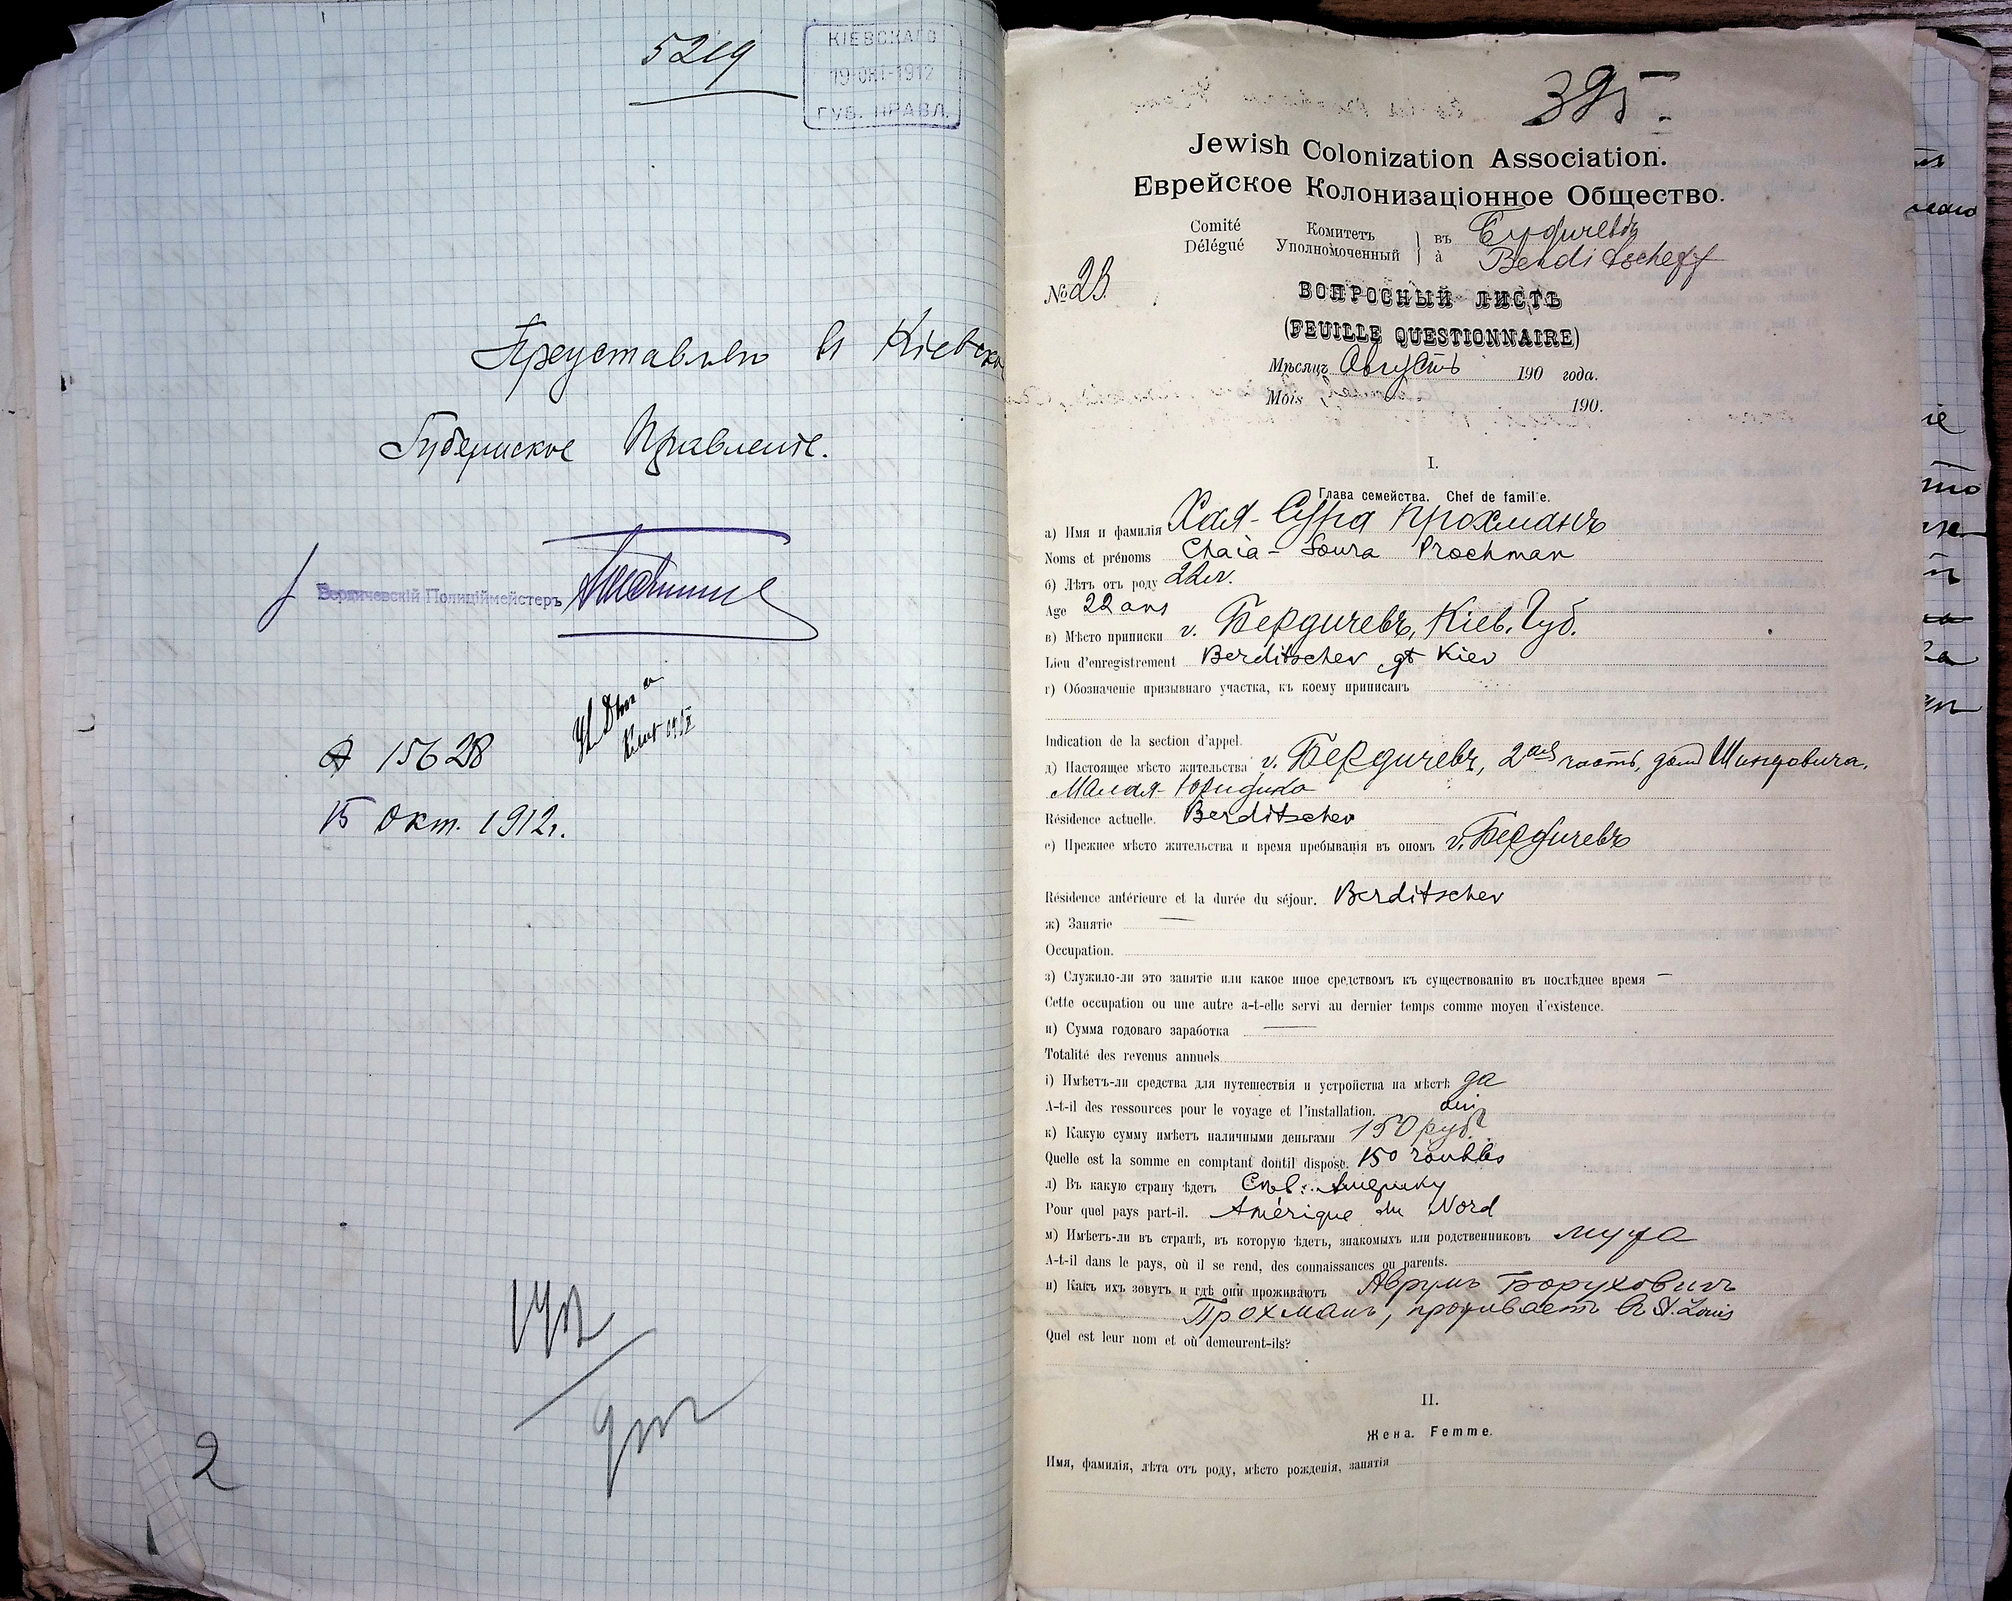 5219
КІЕВСКАГО
19 ОКТ 1912
ГУБ. ПРАВЛ.
Представлено въ Кіевское
Губернское Правленіе.
Бердичевскій Полиціймейстеръ
15628
15 Окт. 1912г.
2
395.
Jewish Colonization Association.
Еврейское Колонизаціонное Общество.
Comité Комитетъ въ Бердичевѣ
Délégué Уполномоченный à Berditscheff
№ 23.
ВОПРОСНЫЙ ЛИСТЪ
(FEUILLE QUESTIONNAIRE)
Мѣсяцъ Августъ 190 года.
Mois 190.
I.
Глава семейства. Chef de famille.
а) Имя и фамилія Хая-Сура Прохманъ
Noms et prénoms Chaia-Soura Prochman
б) Лѣтъ отъ роду 22 л.
Age 22 ans
в) Мѣсто приписки г. Бердичевъ, Кіев. Губ.
Lieu d'enregistrement Berditschev gt Kiev
г) Обозначеніе призывнаго участка, къ коему приписанъ
Indication de la section d'appel.
д) Настоящее мѣсто жительства г. Бердичевъ, 2ая часть, домъ Шиндовича,
Малая-Юридика
Résidence actuelle. Berditschev
е) Прежнее мѣсто жительства и время пребыванія въ ономъ г. Бердичевъ
Résidence antérieure et la durée du séjour. Berditschev
ж) Занятіе —
Occupation.
з) Служило-ли это занятіе или какое иное средствомъ къ существованію въ послѣднее время —
Cette occupation ou une autre a-t-elle servi au dernier temps comme moyen d'existence.
и) Сумма годоваго заработка —
Totalité des revenus annuels
і) Имѣетъ-ли средства для путешествія и устройства на мѣстѣ да
A-t-il des ressources pour le voyage et l'installation. oui
к) Какую сумму имѣетъ наличными деньгами 150 руб.
Quelle est la somme en comptant dontil dispose. 150 roubles
л) Въ какую страну ѣдетъ Сѣв. Америку
Pour quel pays part-il. Amérique du Nord
м) Имѣетъ-ли въ странѣ, въ которую ѣдетъ, знакомыхъ или родственниковъ мужа
A-t-il dans le pays, où il se rend, des connaissances ou parents.
н) Какъ ихъ зовутъ и гдѣ они проживаютъ Аврумъ Боруховичъ
Прохманъ, проживаетъ въ St. Louis
Quel est leur nom et où demeurent-ils?
II.
Жена. Femme.
Имя, фамилія, лѣта отъ роду, мѣсто рожденія, занятія